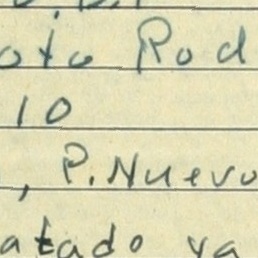 oto Rod
10
, P. Nuevo
atado ya